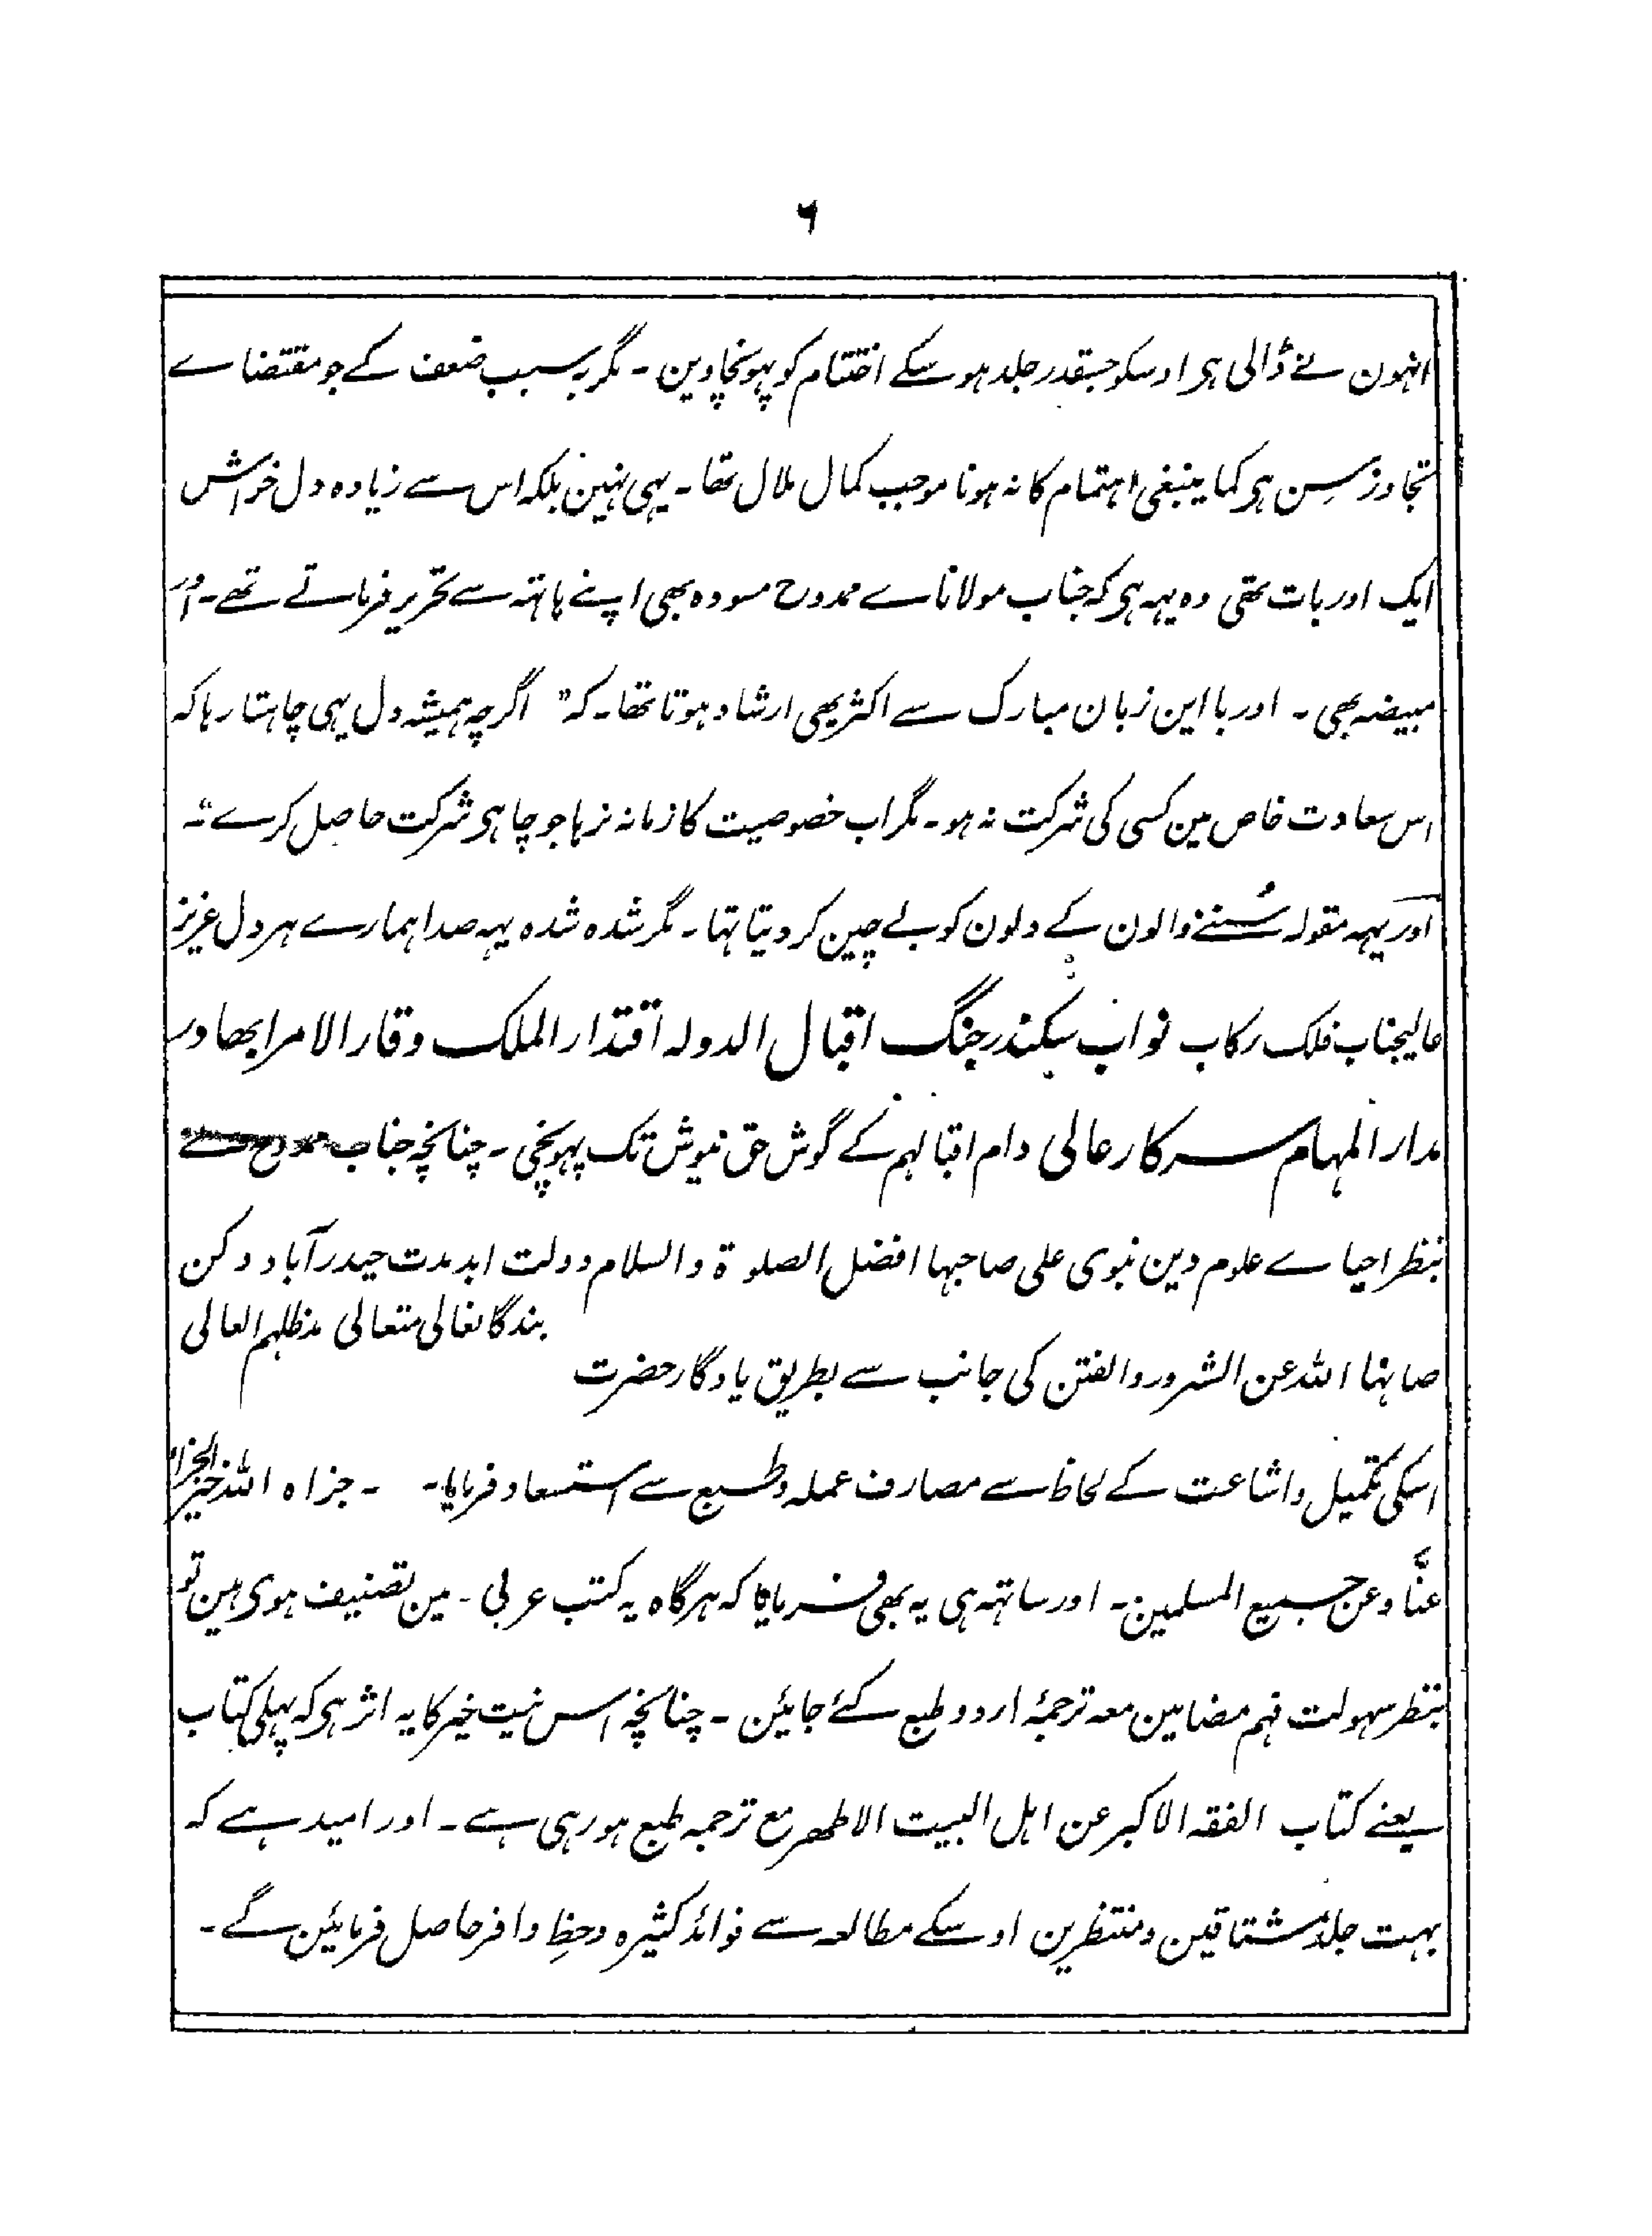 ۶
انہون نے ڈالی ہی اوسکو جسقدر جلد ہوسکے اختتام کو پہونچاوین ۔ مگر بہ سبب ضعف کے جو مقتضاے
تجاوز سِن ہی کما ینبغی اہتمام کا نہ ہونا موجب کمال ملال تھا ۔ یہی نہین بلکہ اس سے زیادہ دل خراش
ایک اور بات تھی وہ یہہ ہی کہ جناب مولاناے ممدوح مسودہ بھی اپنے ہاتہہ سے تحریر فرماتے تھے ۔ اور
مبیضہ بھی ۔ اور با این زبان مبارک سے اکثر بھی ارشاد ہوتا تھا ۔ کہ " اگرچہ ہمیشہ دل یہی چاہتا رہا کہ
اس سعادت خاص مین کسی کی شرکت نہ ہو ۔ مگر اب خصوصیت کا زمانہ نرہا جو چاہی شرکت حاصل کرے " ۔
اور یہہ مقولہ سُننے والون کے دلون کو بے چین کر دیتا تہا ۔ مگر شدہ شدہ یہہ صدا ہمارے ہر دل عزیز
عالیجناب فلک رکاب نواب سکندر جنگ اقبال الدولہ اقتدار الملک وقار الامرا بھادر
مدار المہام سرکار عالی دام اقبالہم کے گوش حق نیوش تک پہونچی ۔ چنانچہ جناب ممدوح نے
بنظر احیاے علوم دین نبوی علی صاحبہا افضل الصلوۃ والسلام دولت ابد مدت حیدرآباد دکن
صانہا اللہ عن الشرور والفتن کی جانب سے بطریق یادگار حضرت بندگانعالی متعالی مدظلہم العالی
اسکی تکمیل و اشاعت کے لحاظ سے مصارف عملہ و طبع سے استسعاد فرمایا ۔ ۔ جزاہ اللہ خیر الجزاء
عنَّا وعن جمیع المسلمین ۔ اور ساتہہ ہی یہ بھی فرمایا کہ ہرگاہ یہ کتب عربی ۔ مین تصنیف ہوی ہین تو
بنظر سہولت فہم مضامین معہ ترجمۂ اردو طبع کئے جایئن ۔ چنانچہ اس نیت خیر کا یہ اثر ہی کہ پہلی کتاب
یعنے کتاب الفقہ الاکبر عن اہل البیت الاطھر مع ترجمہ طبع ہو رہی ہے ۔ اور امید ہے کہ
بہت جلد مشتاقین و منتظرین اوسکے مطالعہ سے فوائد کثیرہ و حظِ وافر حاصل فرمایئن گے ۔